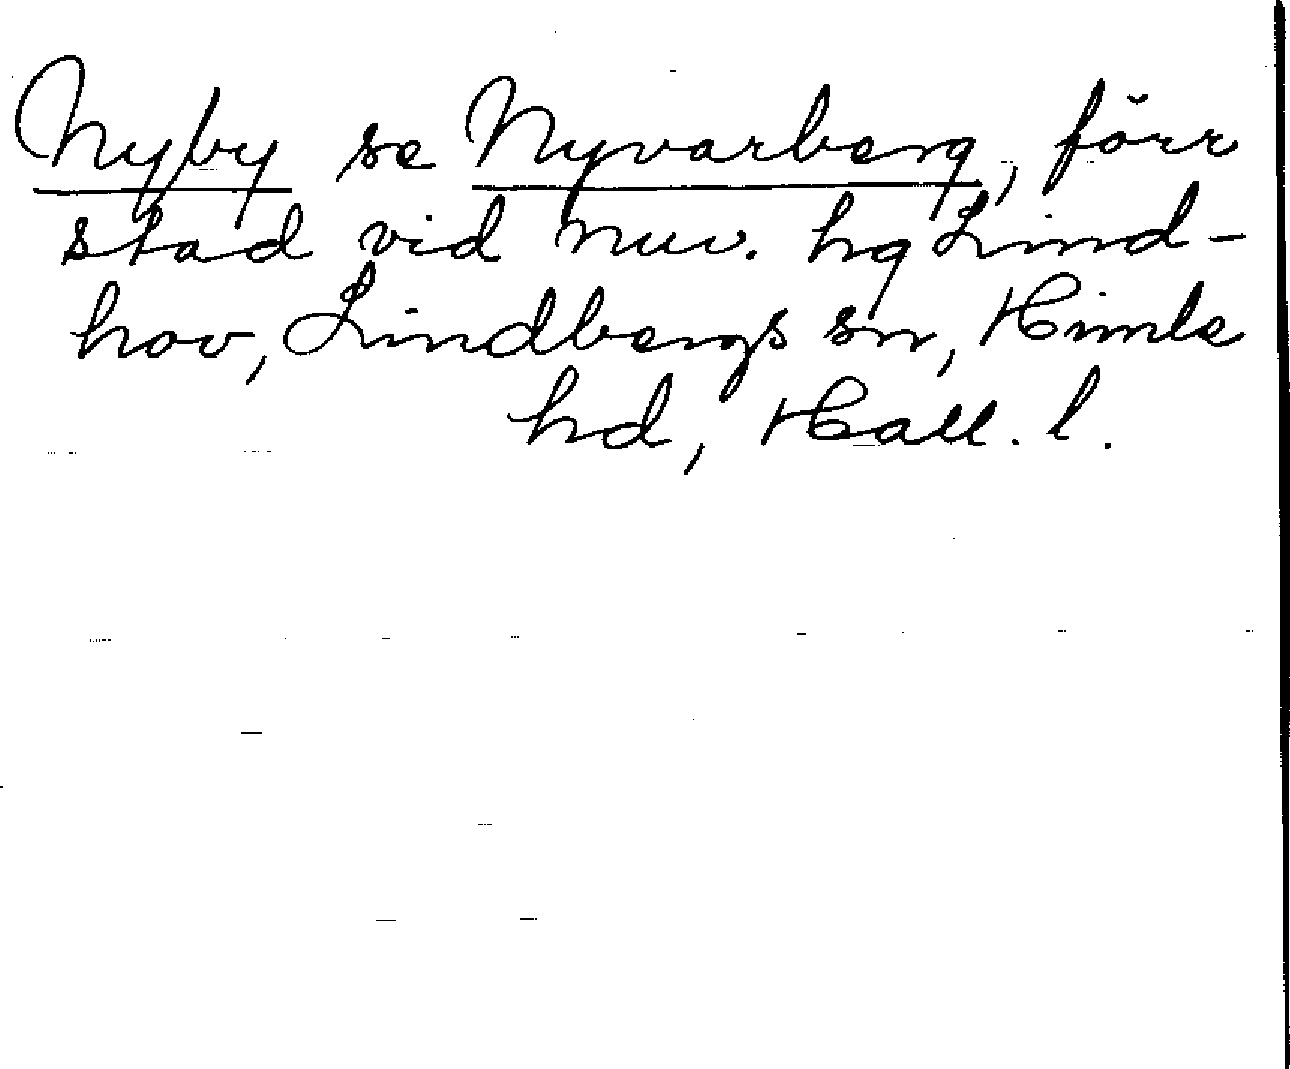 Nyby se Nyvarberg, förr
stad vid nuv. hg Lind-
hov, Lindbergs sn, Himle
hd, Hall. l.